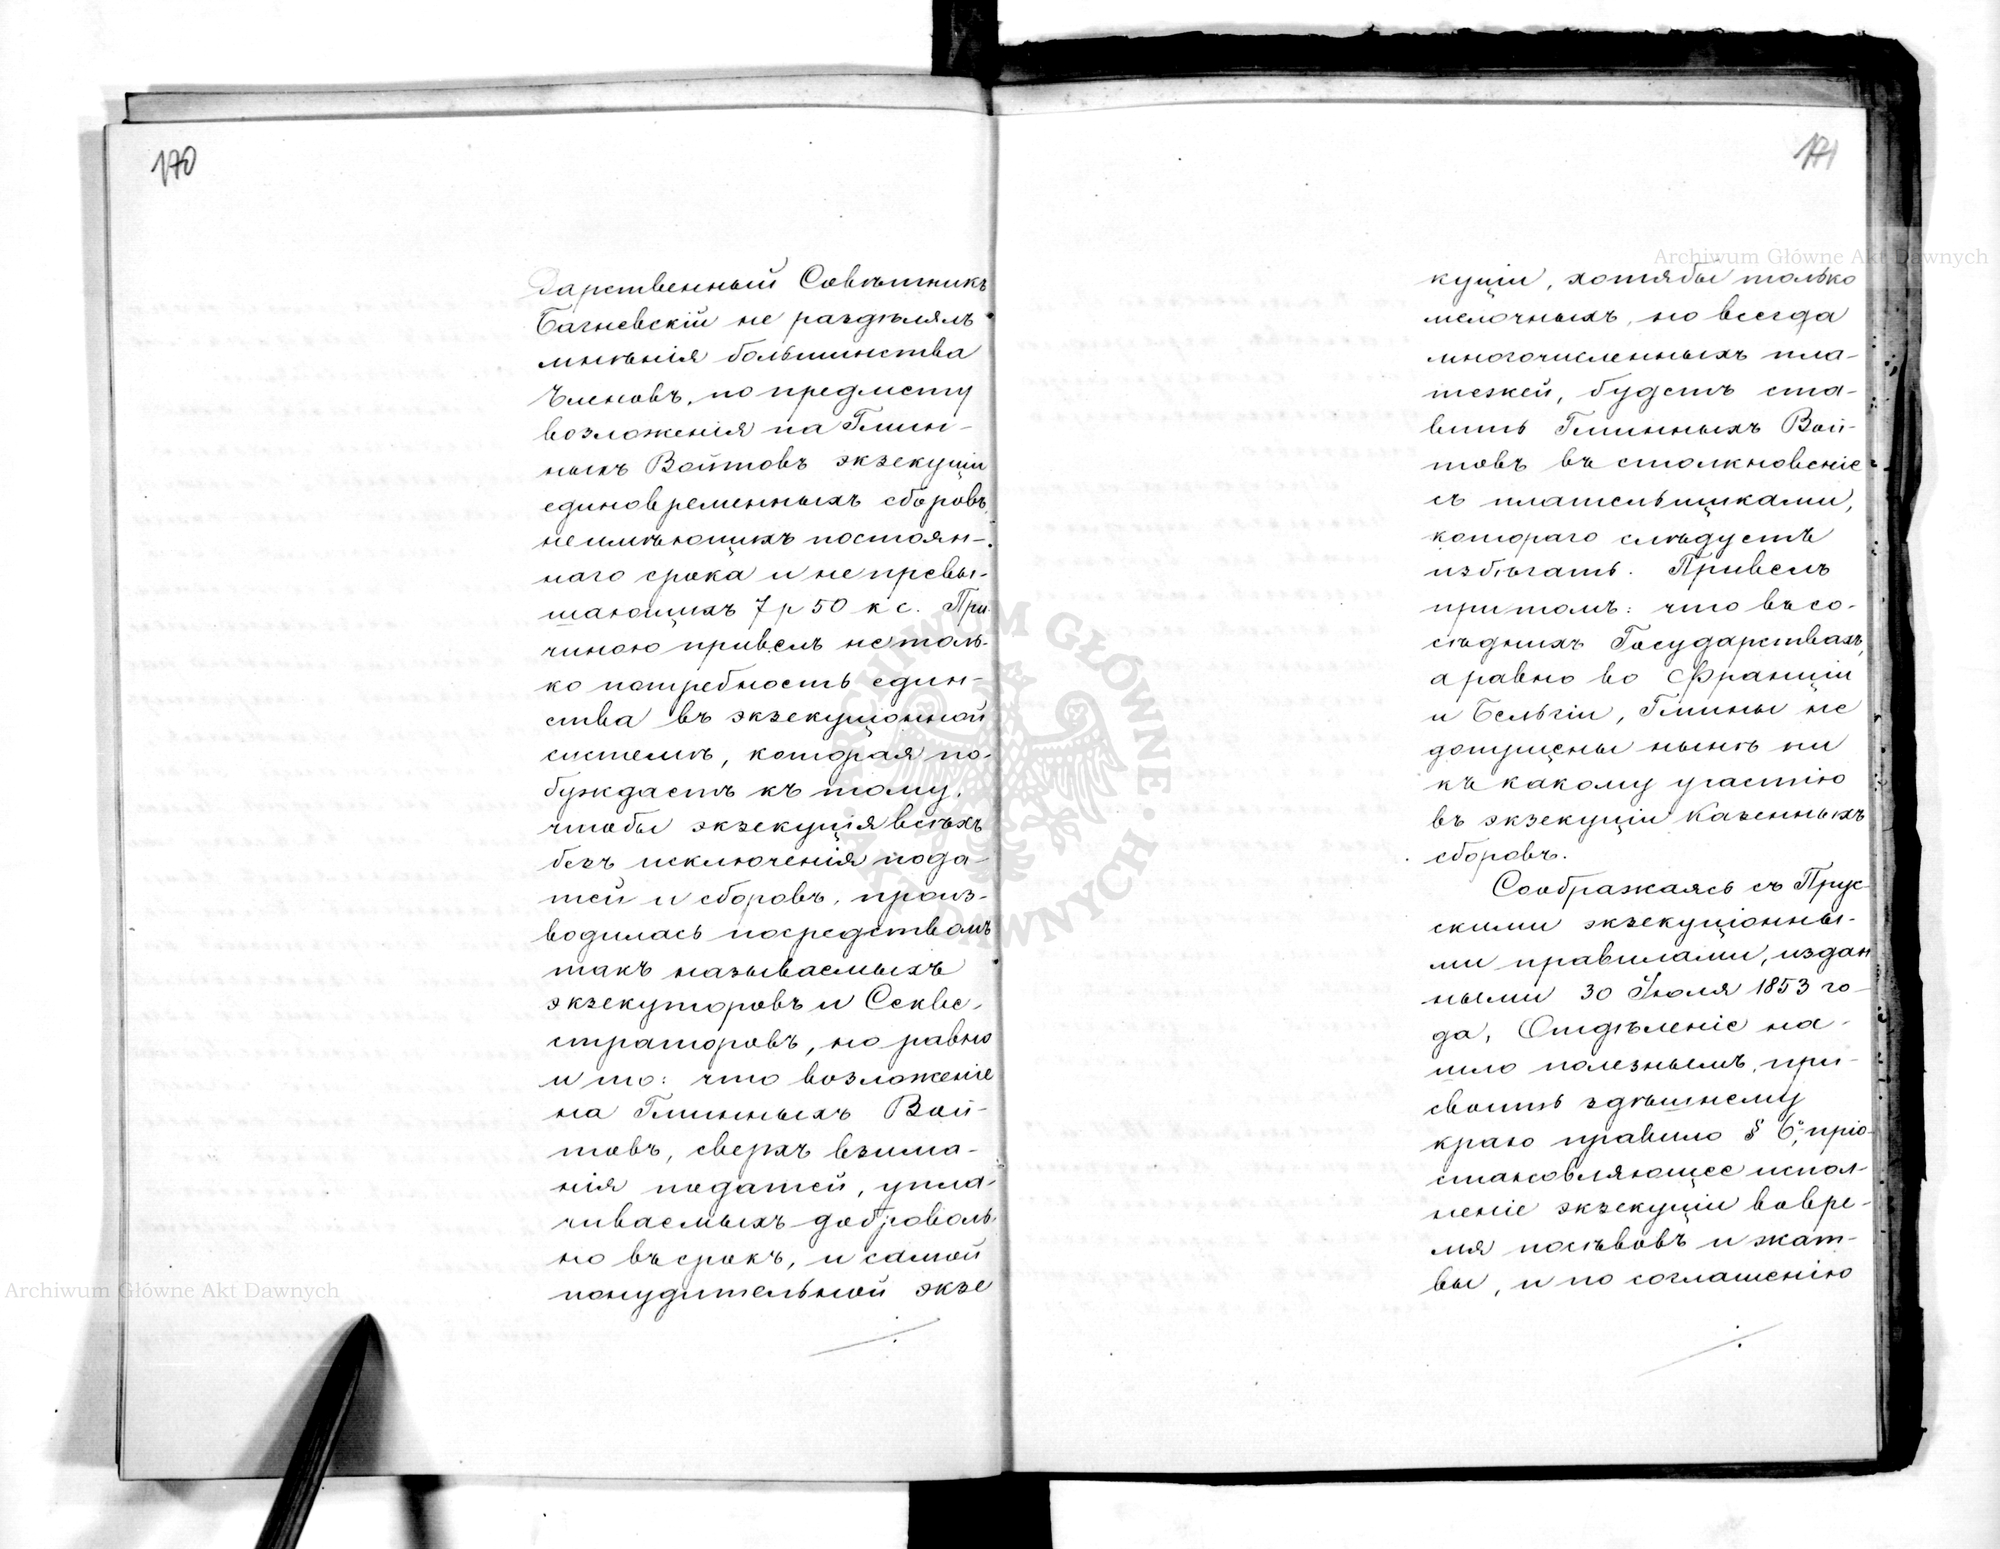 170
дарственный Совѣтникъ
Багневскій не раздѣлялъ
мнѣнія большинства
Членовъ, по предмету
возложенія на Гмин-
ныхъ Войтовъ экзекуціи
единовременныхъ сборовъ,
неимѣющихъ постоян-
наго срока и не превы-
шающихъ 7 р 50 к с. При
чиною привелъ не толь-
ко потребность един-
ства въ экзекуціонной
системѣ, которая по-
буждаетъ къ тому,
чтобы экзекуція всѣхъ
безъ исключенія пода-
тей и сборовъ, произ-
водилась посредствомъ
такъ называемыхъ
экзекуторовъ и Секве-
страторовъ, но равно
и то: что возложеніе
на Гминныхъ Вой-
товъ, сверхъ взима-
нія податей, упла-
чиваемыхъ доброволь
но въ срокъ, и самой
понудительной экзе
171
куціи, хотябы только
мелочныхъ, но всегда
многочисленныхъ пла-
тежей, будетъ ста-
вить Гминныхъ Вой-
товъ въ столкновеніе
съ плательщиками,
котораго слѣдуетъ
избѣгать. Привелъ
притомъ: что въ со-
сѣднихъ Государствахъ,
а равно во Франціи
и Бельгіи, Гмины не
допущены нынѣ ни
къ какому участію
въ экзекуціи казенныхъ
сборовъ.
Соображаясь съ Прус-
скими экзекуціонны-
ми правилами, издан
ными 30 Іюля 1853 го-
да, Отдѣленіе на-
шло полезнымъ, при-
своить здѣшнему
краю правило § 6, пріо-
становляющее испол-
неніе экзекуціи вовре-
мя посѣвовъ и жат-
вы, и по соглашенію
Archiwum Główne Akt Dawnych
Archiwum Główne Akt Dawnych
ARCHIWUM GŁÓWNE AKT DAWNYCH